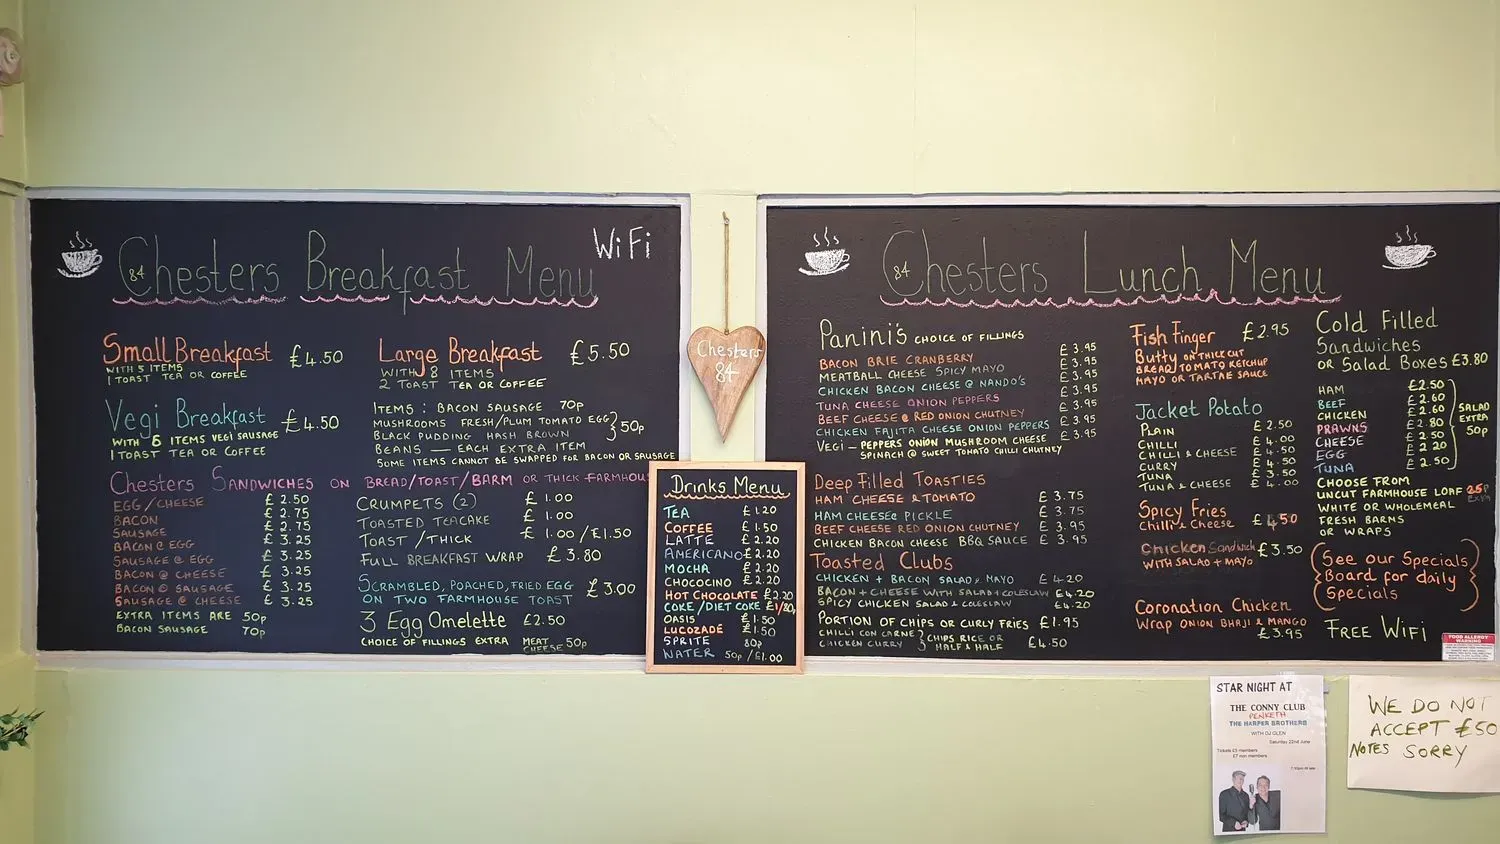 84 Chesters Breakfast Menu
WiFi
Small Breakfast £4.50
WITH 5 ITEMS
1 TOAST TEA OR COFFEE
Large Breakfast £5.50
WITH 8 ITEMS
2 TOAST TEA OR COFFEE
Vegi Breakfast £4.50
WITH 6 ITEMS VEGI SAUSAGE
1 TOAST TEA OR COFFEE
ITEMS: BACON SAUSAGE 70p
MUSHROOMS FRESH/PLUM TOMATO EGG
BLACK PUDDING HASH BROWN } 50p
BEANS — EACH EXTRA ITEM
SOME ITEMS CANNOT BE SWAPPED FOR BACON OR SAUSAGE
Chesters SANDWICHES ON BREAD/TOAST/BARM OR THICK FARMHOUS
EGG/CHEESE £2.50
BACON £2.75
SAUSAGE £2.75
BACON @ EGG £3.25
SAUSAGE @ EGG £3.25
BACON @ CHEESE £3.25
BACON @ SAUSAGE £3.25
SAUSAGE @ CHEESE £3.25
EXTRA ITEMS ARE 50p
BACON SAUSAGE 70p
CRUMPETS (2) £1.00
TOASTED TEACAKE £1.00
TOAST/THICK £1.00/£1.50
FULL BREAKFAST WRAP £3.80
SCRAMBLED, POACHED, FRIED EGG
ON TWO FARMHOUSE TOAST £3.00
3 Egg Omelette £2.50
CHOICE OF FILLINGS EXTRA MEAT CHEESE 50p
Chesters
84
Drinks Menu
TEA £1.20
COFFEE £1.50
LATTE £2.20
AMERICANO £2.20
MOCHA £2.20
CHOCOCINO £2.20
HOT CHOCOLATE £2.20
COKE/DIET COKE £1/80p
OASIS £1.50
LUCOZADE £1.50
SPRITE 80p
WATER 50p/£1.00
84 Chesters Lunch Menu
Panini's CHOICE OF FILLINGS
BACON BRIE CRANBERRY £3.95
MEATBALL CHEESE SPICY MAYO £3.95
CHICKEN BACON CHEESE @ NANDO'S £3.95
TUNA CHEESE ONION PEPPERS £3.95
BEEF CHEESE @ RED ONION CHUTNEY £3.95
CHICKEN FAJITA CHEESE ONION PEPPERS £3.95
VEGI – PEPPERS ONION MUSHROOM CHEESE £3.95
SPINACH @ SWEET TOMATO CHILLI CHUTNEY
Deep Filled Toasties
HAM CHEESE & TOMATO £3.75
HAM CHEESE @ PICKLE £3.75
BEEF CHEESE RED ONION CHUTNEY £3.95
CHICKEN BACON CHEESE BBQ SAUCE £3.95
Toasted Clubs
CHICKEN + BACON SALAD & MAYO £4.20
BACON + CHEESE WITH SALAD + COLESLAW £4.20
SPICY CHICKEN SALAD & COLESLAW £4.20
PORTION OF CHIPS OR CURLY FRIES £1.95
CHILLI CON CARNE } CHIPS RICE OR
CHICKEN CURRY } HALF & HALF £4.50
Fish Finger £2.95
Butty ON THICK CUT
BREAD TOMATO KETCHUP
MAYO OR TARTAE SAUCE
Jacket Potato
PLAIN £2.50
CHILLI £4.00
CHILLI & CHEESE £4.50
CURRY £4.50
TUNA £3.50
TUNA & CHEESE £4.00
Spicy Fries
Chilli & Cheese £4.50
Chicken Sandwich £3.50
WITH SALAD + MAYO
Coronation Chicken
Wrap ONION BHAJI & MANGO
£3.95
Cold Filled
Sandwiches
OR Salad Boxes £3.80
HAM £2.50
BEEF £2.60
CHICKEN £2.60
PRAWNS £2.80
CHEESE £2.50
EGG £2.20
TUNA £2.50
SALAD
EXTRA
50p
CHOOSE FROM
UNCUT FARMHOUSE LOAF 25p EXTRA
WHITE OR WHOLEMEAL
FRESH BARNS
OR WRAPS
See our Specials
Board for daily
Specials
FREE WiFi
FOOD ALLERGY
WARNING
STAR NIGHT AT
THE CONNY CLUB
PENKETH
THE HARPER BROTHERS
WITH DJ GLEN
Saturday 22nd June
Tickets £5 members
£7 non members
WE DO NOT
ACCEPT £50
NOTES SORRY